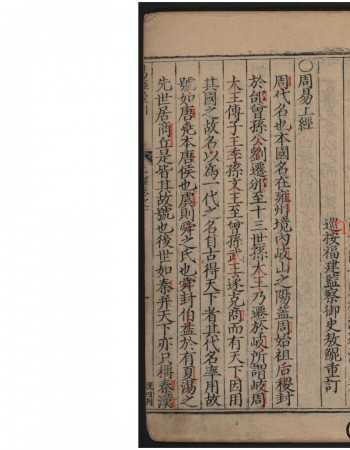 巡按福建監察御史敖鯤重訂
○周易上經
周代名也本國名在雍州境內岐山之陽蓋周始祖后稷封
於邰曾孫公劉遷邠至十三世孫太王乃遷於岐所謂岐周
太王傳子王季孫文王至曾孫武王遂克商而有天下因用
其國之故名以為一代之名自古得天下者其代名率用故
號如唐堯本唐侯也虞則舜之氏也舜封伯益於有夏湯之
先世居商丘是皆其故號也後世如秦并天下亦只稱秦漢